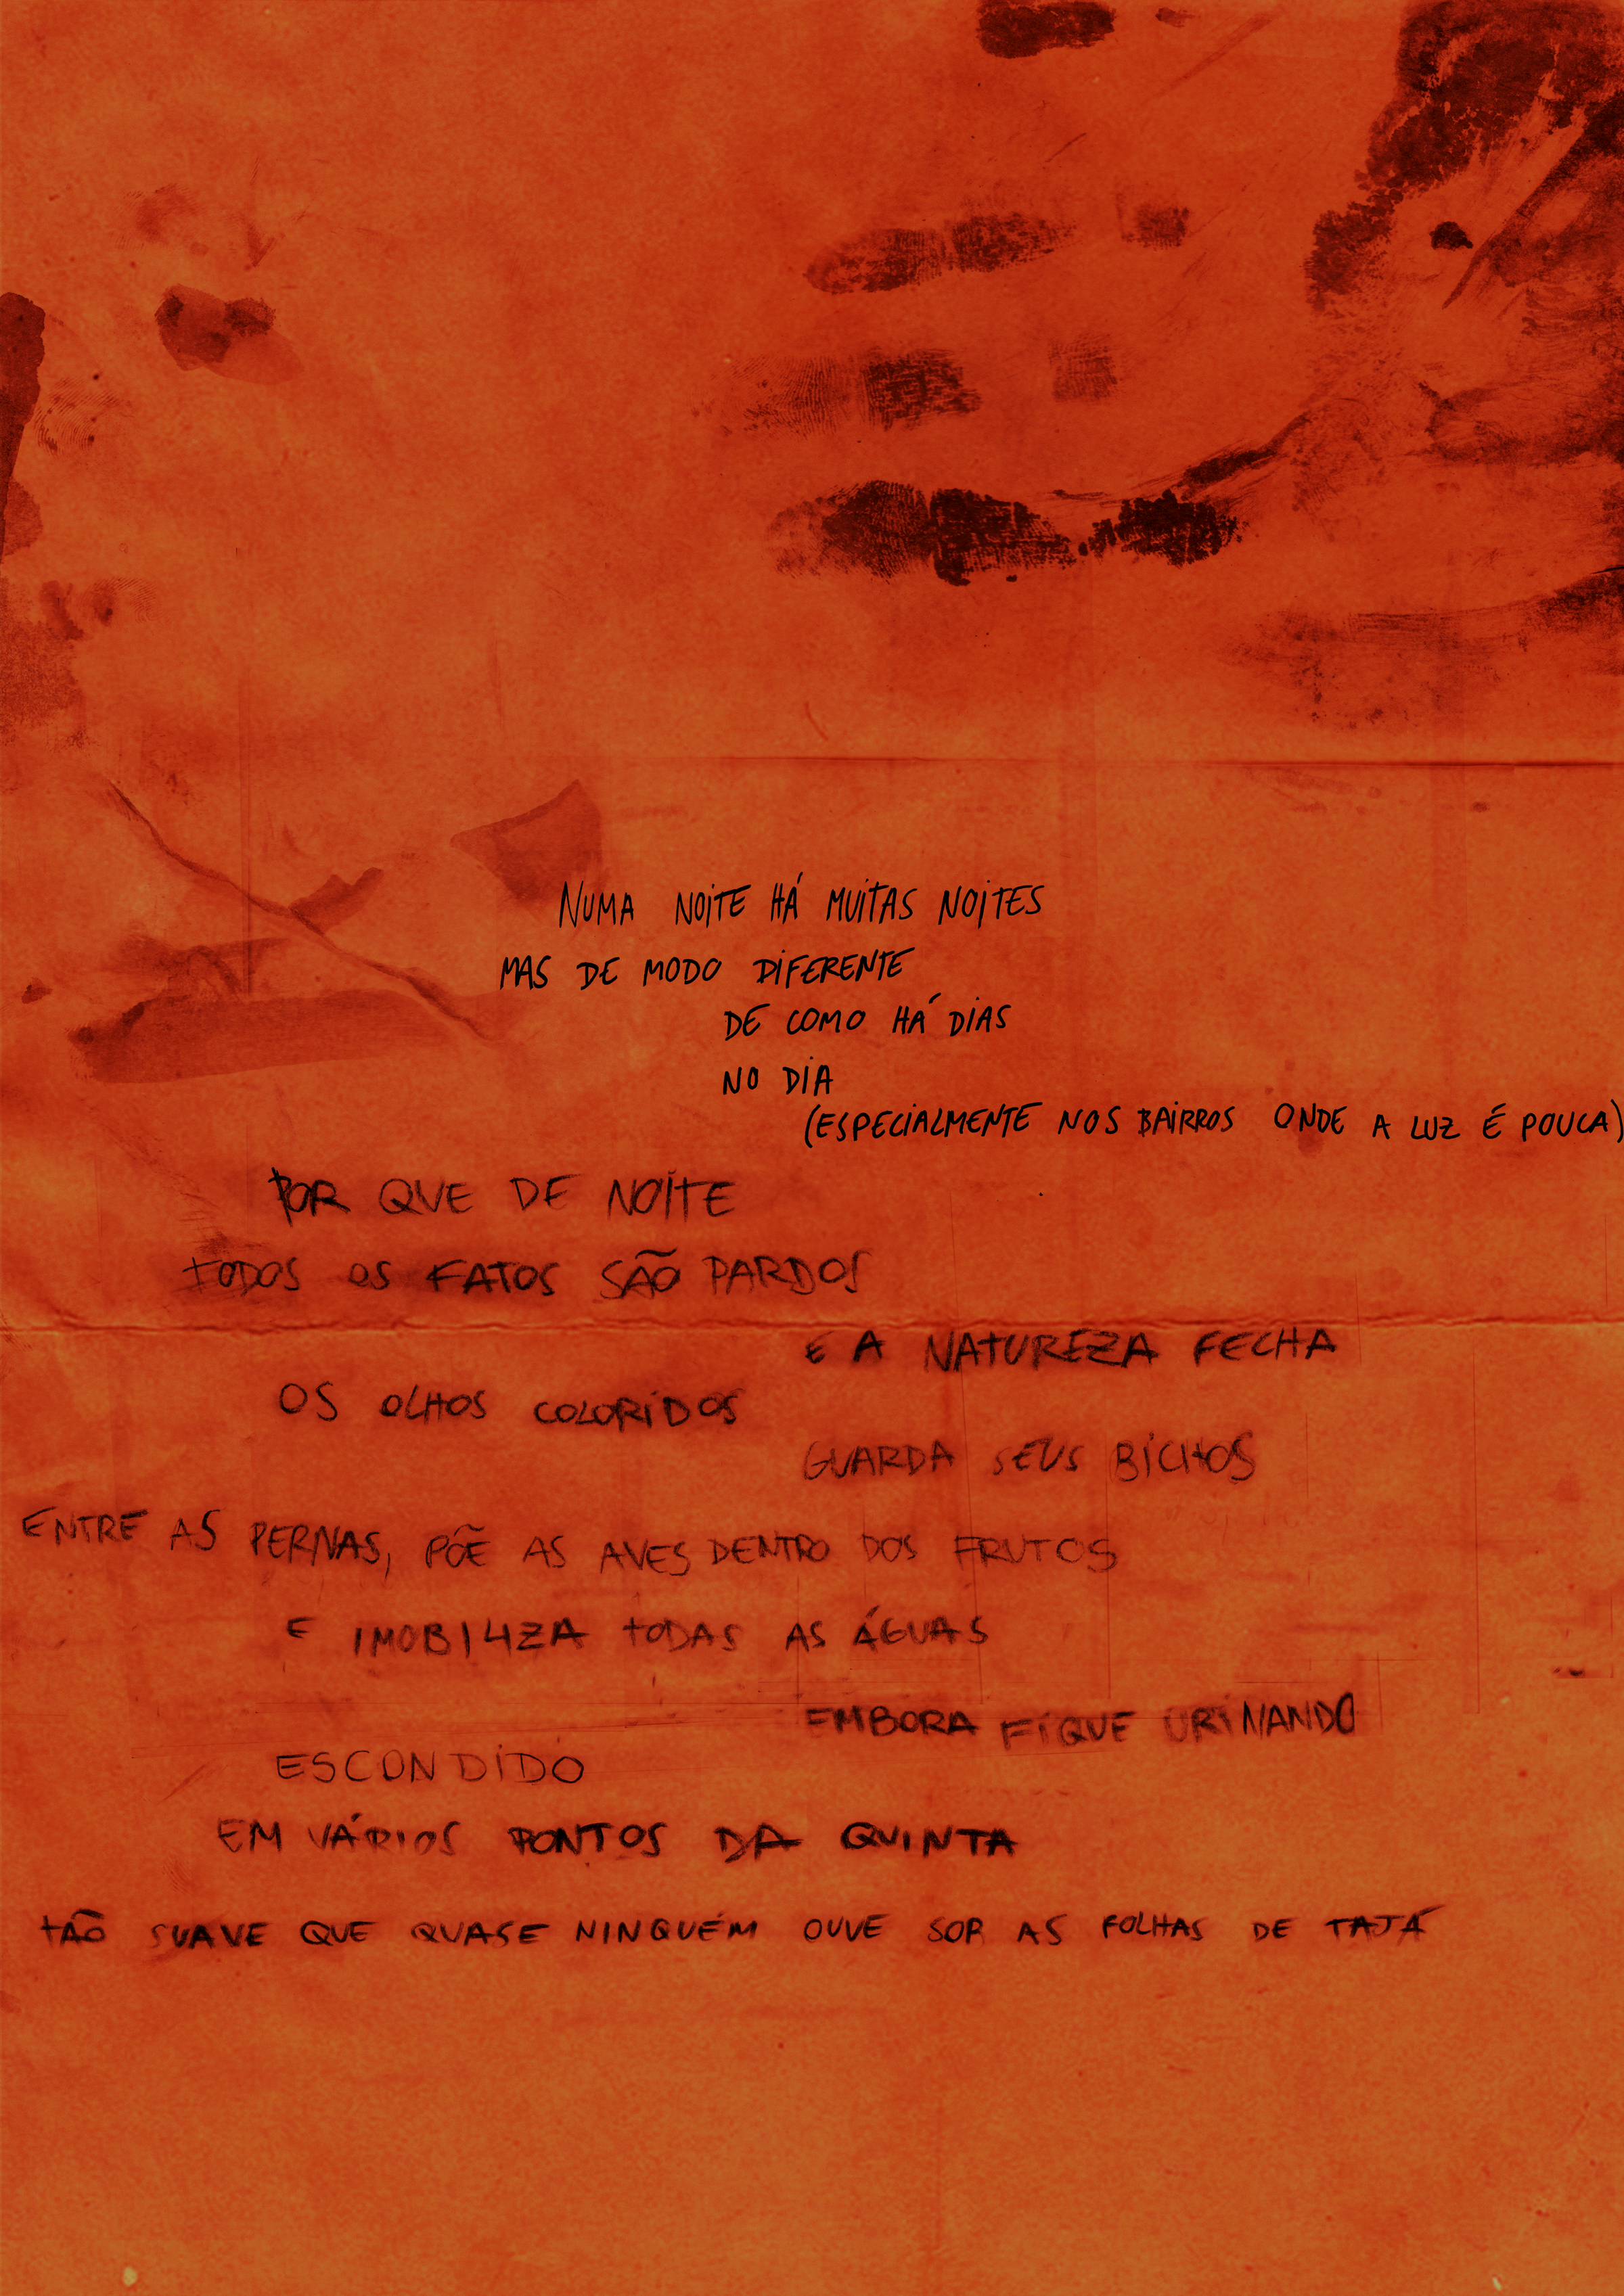 NUMA NOITE HÁ MUITAS NOITES
MAS DE MODO DIFERENTE
DE COMO HÁ DIAS
NO DIA
(ESPECIALMENTE NOS BAIRROS ONDE A LUZ É POUCA)
POR QUE DE NOITE
TODOS OS FATOS SÃO PARDOS
E A NATUREZA FECHA
OS OLHOS COLORIDOS
GUARDA SEUS BICHOS
ENTRE AS PERNAS, PÕE AS AVES DENTRO DOS FRUTOS
E IMOBILIZA TODAS AS ÁGUAS
EMBORA FIQUE URINANDO
ESCONDIDO
EM VÁRIOS PONTOS DA QUINTA
TÃO SUAVE QUE QUASE NINGUÉM OUVE SOB AS FOLHAS DE TAJÁ